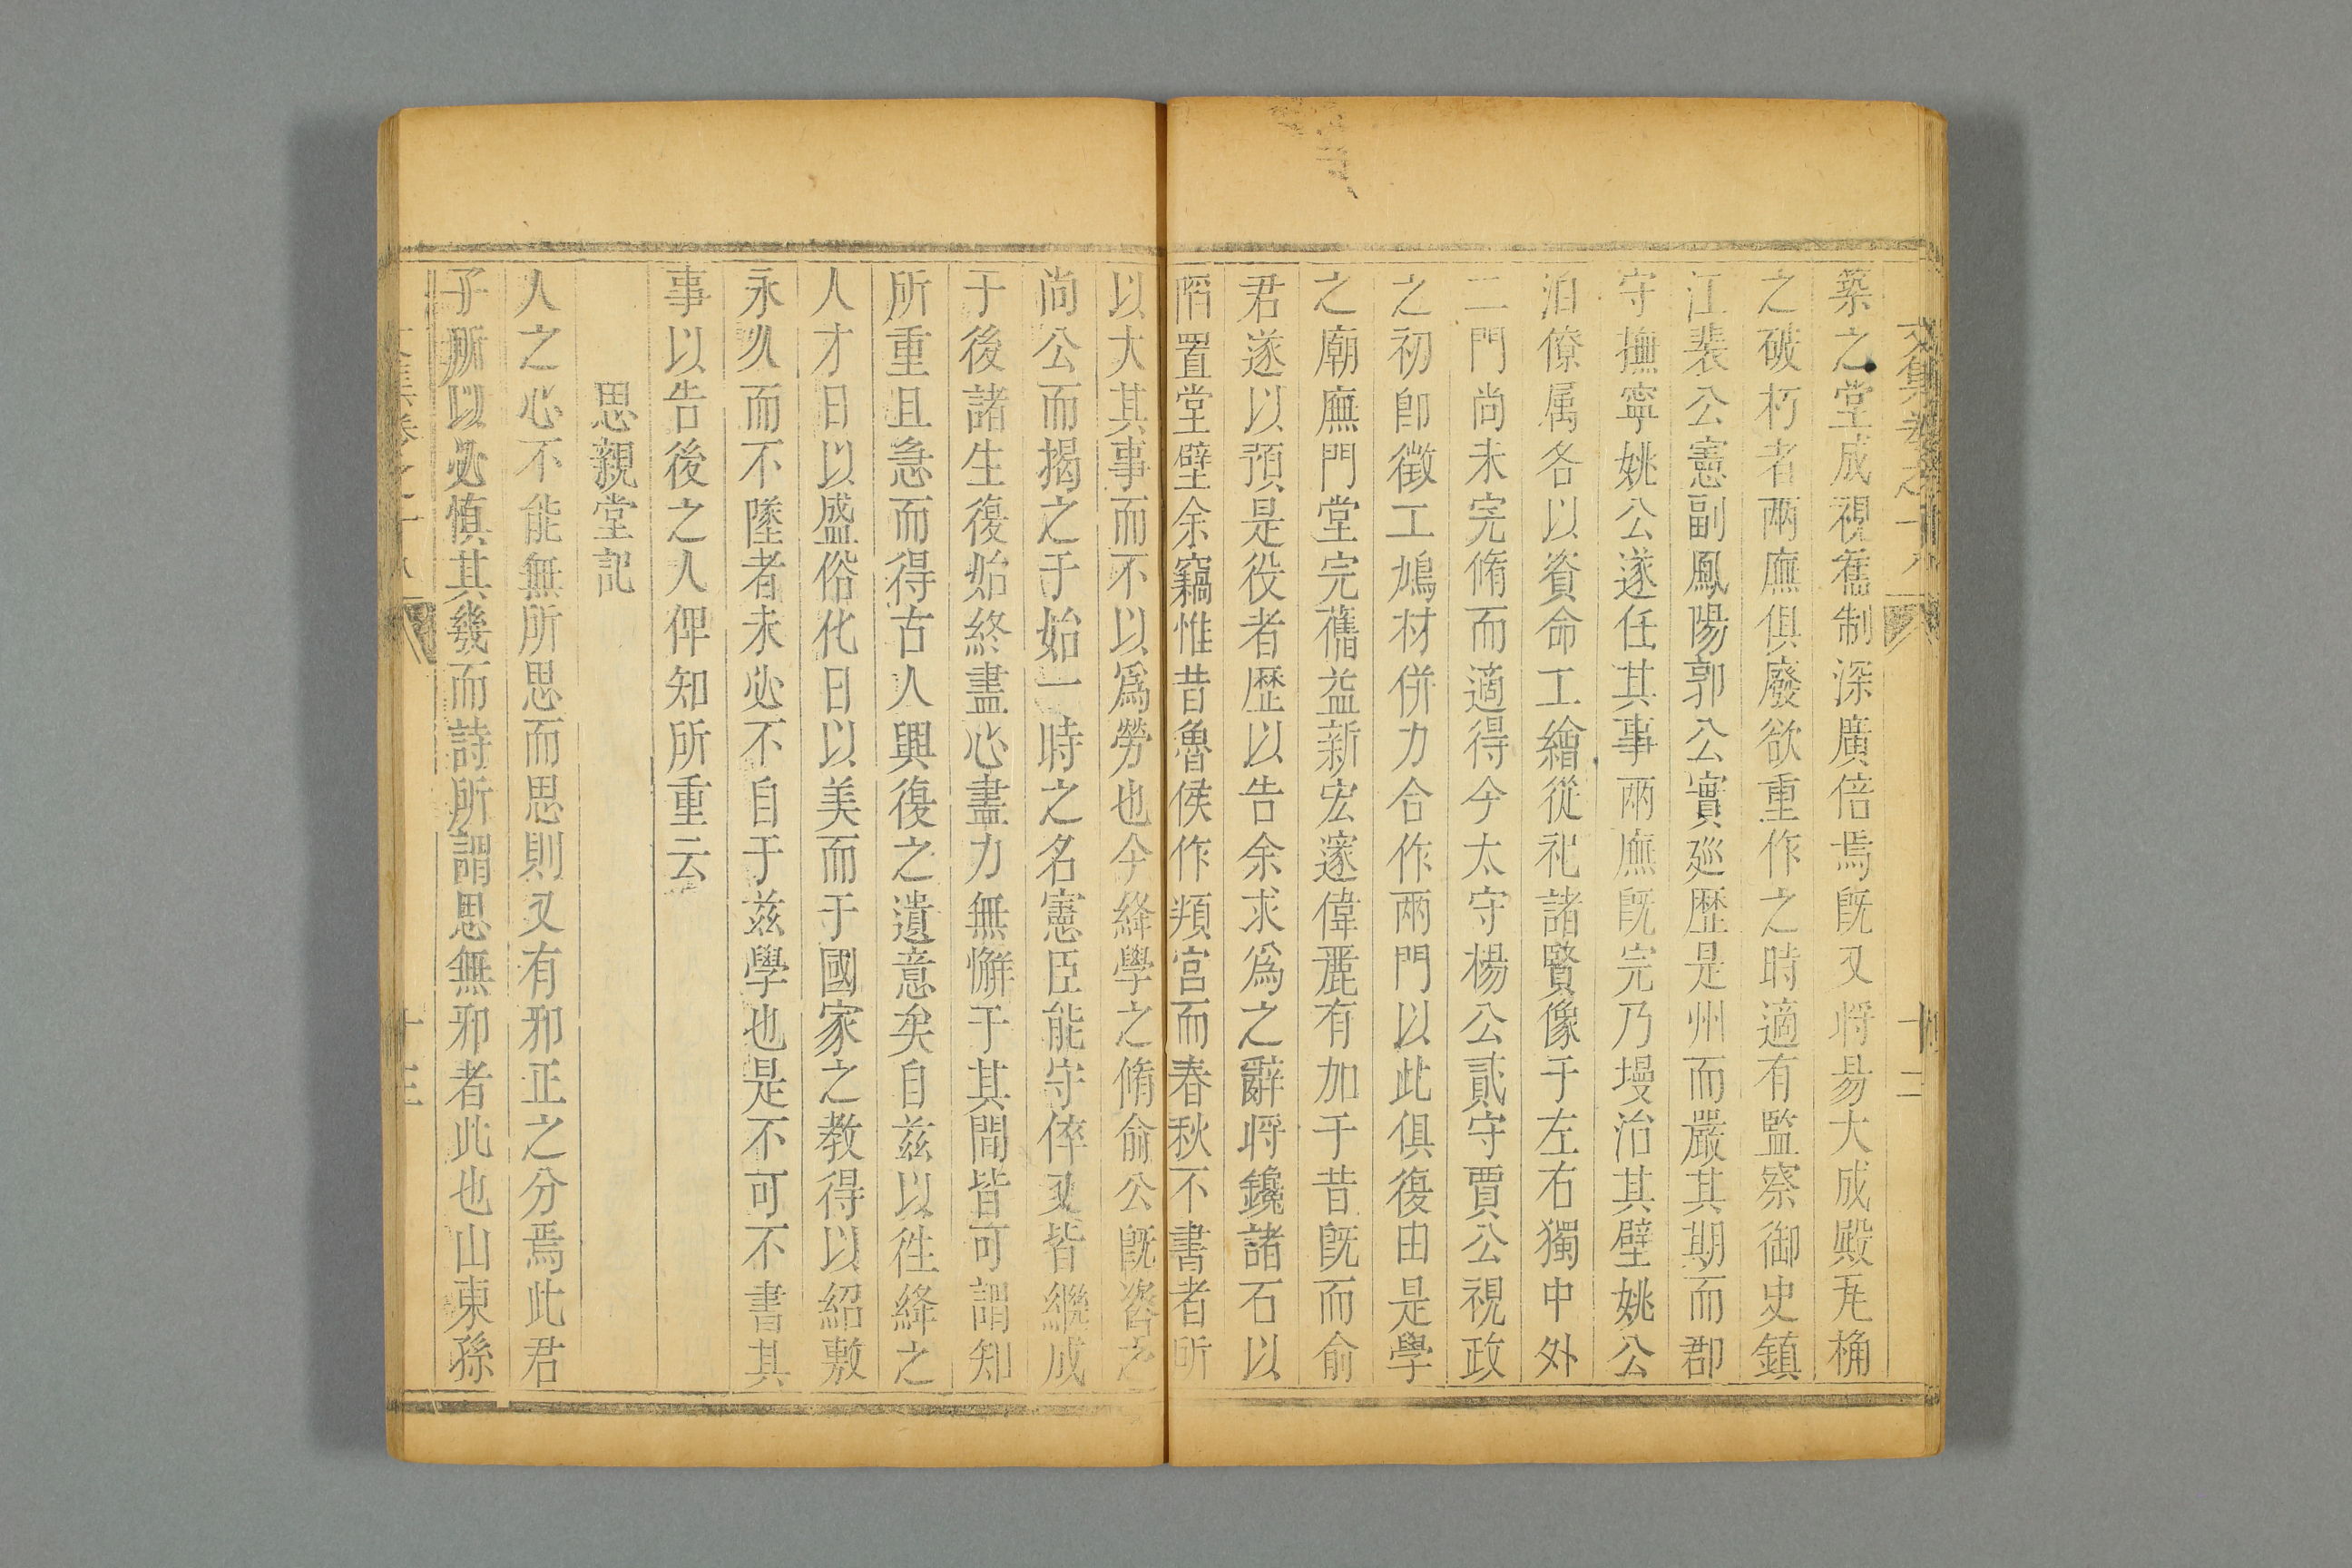 文集卷之十八
十二
築之堂成視舊制深廣倍焉旣又將易大成殿瓦桷
之破朽者兩廡俱廢欲重作之時適有監察御史鎮
江裴公憲副鳳陽郭公實廵歴是州而嚴其期而郡
守撫寧姚公遂任其事兩廡旣完乃墁治其壁姚公
洎僚属各以資命工繪從祀諸賢像于左右獨中外
二門尚未完脩而適得今太守楊公貳守賈公視政
之初卽徵工鳩材併力合作兩門以此俱復由是學
之廟廡門堂完舊益新宏邃偉麗有加于昔旣而俞
君遂以預是役者歴以告余求爲之辭將鑱諸石以
陷置堂壁余竊惟昔魯侯作頖宮而春秋不書者所
以大其事而不以爲勞也今絳學之脩俞公旣㳟之
尚公而揭之于始一時之名憲臣能守倅又皆繼成
于後諸生復始終盡心盡力無懈于其間皆可謂知
所重且急而得古人興復之遺意矣自兹以徃絳之
人才日以盛俗化日以美而于國家之教得以紹敷
永久而不墜者未必不自于兹學也是不可不書其
事以告後之人俾知所重云
思親堂記
人之心不能無所思而思則又有邪正之分焉此君
子所以必慎其幾而詩所謂思無邪者此也山東孫
文集卷之十八
十三